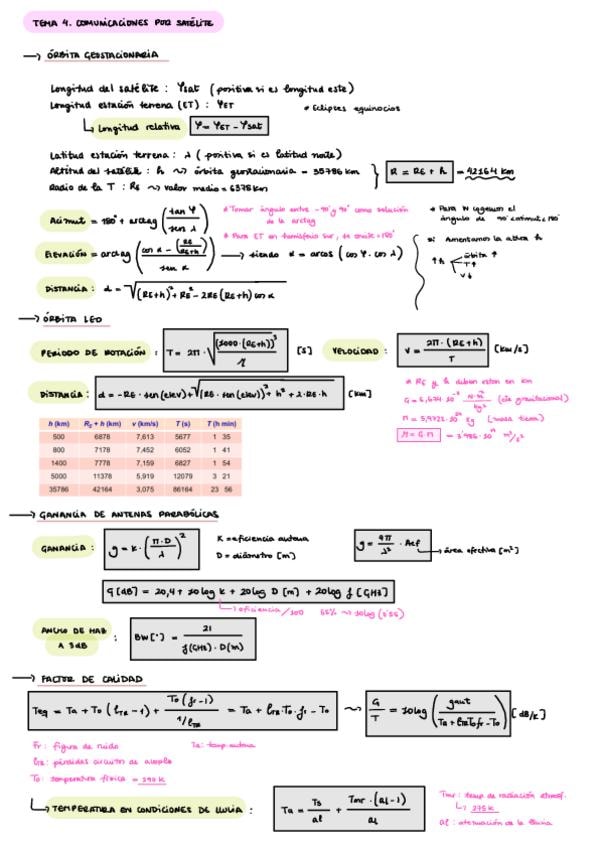 TEMA 4. COMUNICACIONES POR SATÉLITE
→ ÓRBITA GEOSTACIONARIA
Longitud del satélite : φsat (positiva si es longitud este)
Longitud estación terrena (ET) : φET * Eclipses equinocios
Longitud relativa φ = φET - φsat
Latitud estación terrena : λ (positiva si es latitud norte)
Altitud del satélite : h ~> órbita geostacionaria = 35786 km } R = RE + h = 42164 km
Radio de la T : RE ~> valor medio = 6378 km
Acimut = 180° + arctag (tan φ / sen λ)
* Tomar ángulo entre -90 y 90 como solución de la arctag
* Para ET en hemisferio sur, se omite +180°
ELEVACIÓN = arctag ((cos α - (RE / RE+h)) / sen α) → siendo α = arcos (cos φ · cos λ)
si Aumentamos la altura h
↑h órbita ↑
T↑
v↓
DISTANCIA: d = √((RE+h)² + RE² - 2RE(RE+h) cos α)
→ ÓRBITA LEO
PERIODO DE ROTACIÓN : T = 2π · √((1000 · (RE+h))³ / μ) [s] VELOCIDAD : v = 2π · (RE+h) / T [km/s]
DISTANCIA: d = -RE · sen(elev) + √((RE · sen(elev))² + h² + 2·RE·h) [km]
* RE y h deben estar en km
G = 6,674·10⁻¹¹ N·m²/kg² (cte gravitacional)
M = 5,9722·10²⁴ kg (masa tierra)
μ = G·M = 3'986·10¹⁴ m³/s²
h (km) RE + h (km) v (km/s) T (s) T (h min)
500 6878 7,613 5677 1 35
800 7178 7,452 6052 1 41
1400 7778 7,159 6827 1 54
5000 11378 5,919 12079 3 21
35786 42164 3,075 86164 23 56
→ GANANCIA DE ANTENAS PARABÓLICAS
GANANCIA : g = K · (π·D / λ)² K = eficiencia antena g = 4π / λ² · Aef
D = diámetro [m] → área efectiva [m²]
G [dB] = 20,4 + 10log k + 20log D [m] + 20log f [GHz]
→ eficiencia/100 55% ~> 10log (0'55)
ANCHO DE HAZ A 3dB : BW [°] = 21 / f(GHz) · D(m)
→ FACTOR DE CALIDAD
Teq = Ta + To (lTR - 1) + To (fr - 1) / 1/lTR = Ta + lTR·To·fr - To ~> G/T = 10log (gant / Ta + lTR·To·fr - To) [dB/K]
Fr : figura de ruido Ta : temp antena
lTR : pérdidas circuitos de acoplo
To : temperatura física = 290 K
TEMPERATURA EN CONDICIONES DE LLUVIA : Ta = Ts / al + Tmr · (al - 1) / al
Tmr : temp de radiación atmosf.
275 K
al : atenuación de la lluvia